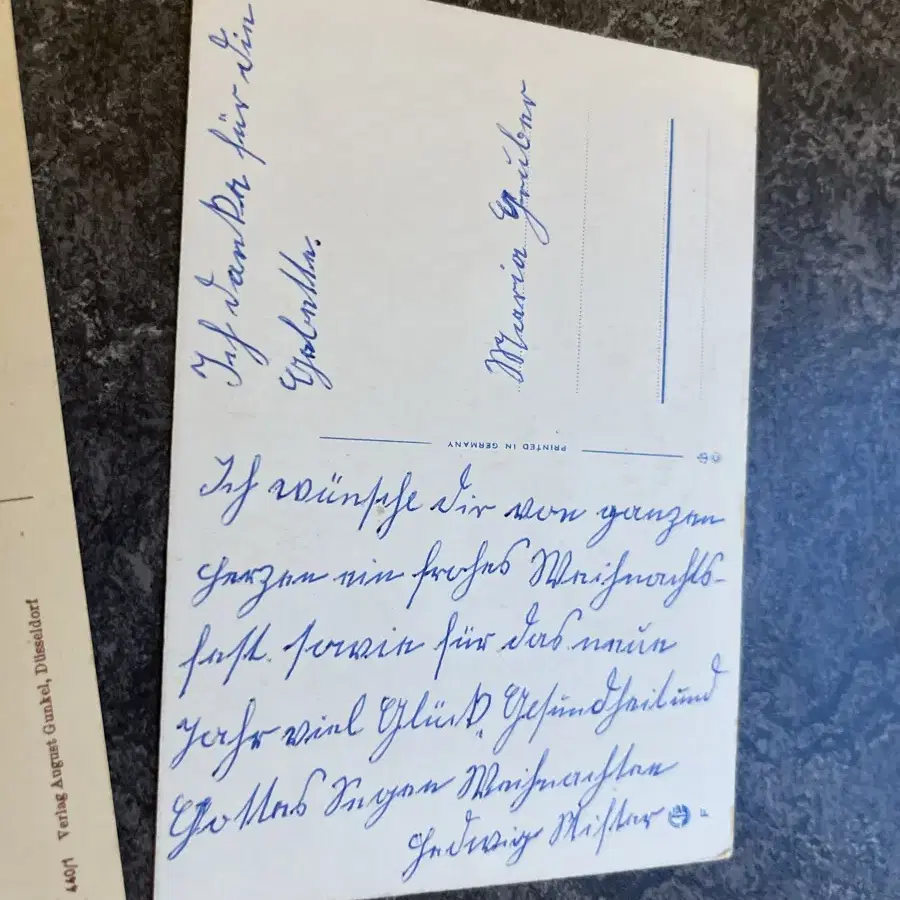 Ich danke für die
Gebette.
Maria Gruber
PRINTED IN GERMANY
Ich wünsche dir von ganzen
Herzen ein frohes Weihnachts-
fest. sowie für das neue
Jahr viel Glück, Gesundheit und
Gottes Segen Weihnachten
Hedwig
440/1 Verlag August Gunkel, Düsseldorf